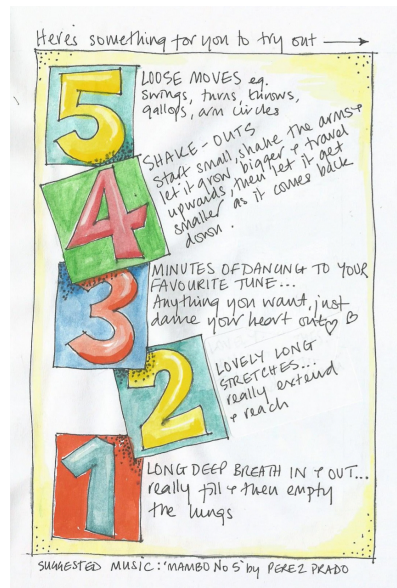 Here's something for you to try out
5
LOOSE MOVES eg.
swings, turns, throws,
gallops, arm circles
4
SHAKE-OUTS
start small, shake the arms &
let it grow bigger & travel
upwards, then let it get
smaller as it comes back
down.
3
MINUTES OF DANCING TO YOUR
FAVOURITE TUNE...
Anything you want, just
dance your heart out
2
LOVELY LONG
STRETCHES...
really extend
& reach
1
LONG DEEP BREATH IN & OUT...
really fill & then empty
the lungs
SUGGESTED MUSIC: 'MAMBO No 5' by PEREZ PRADO